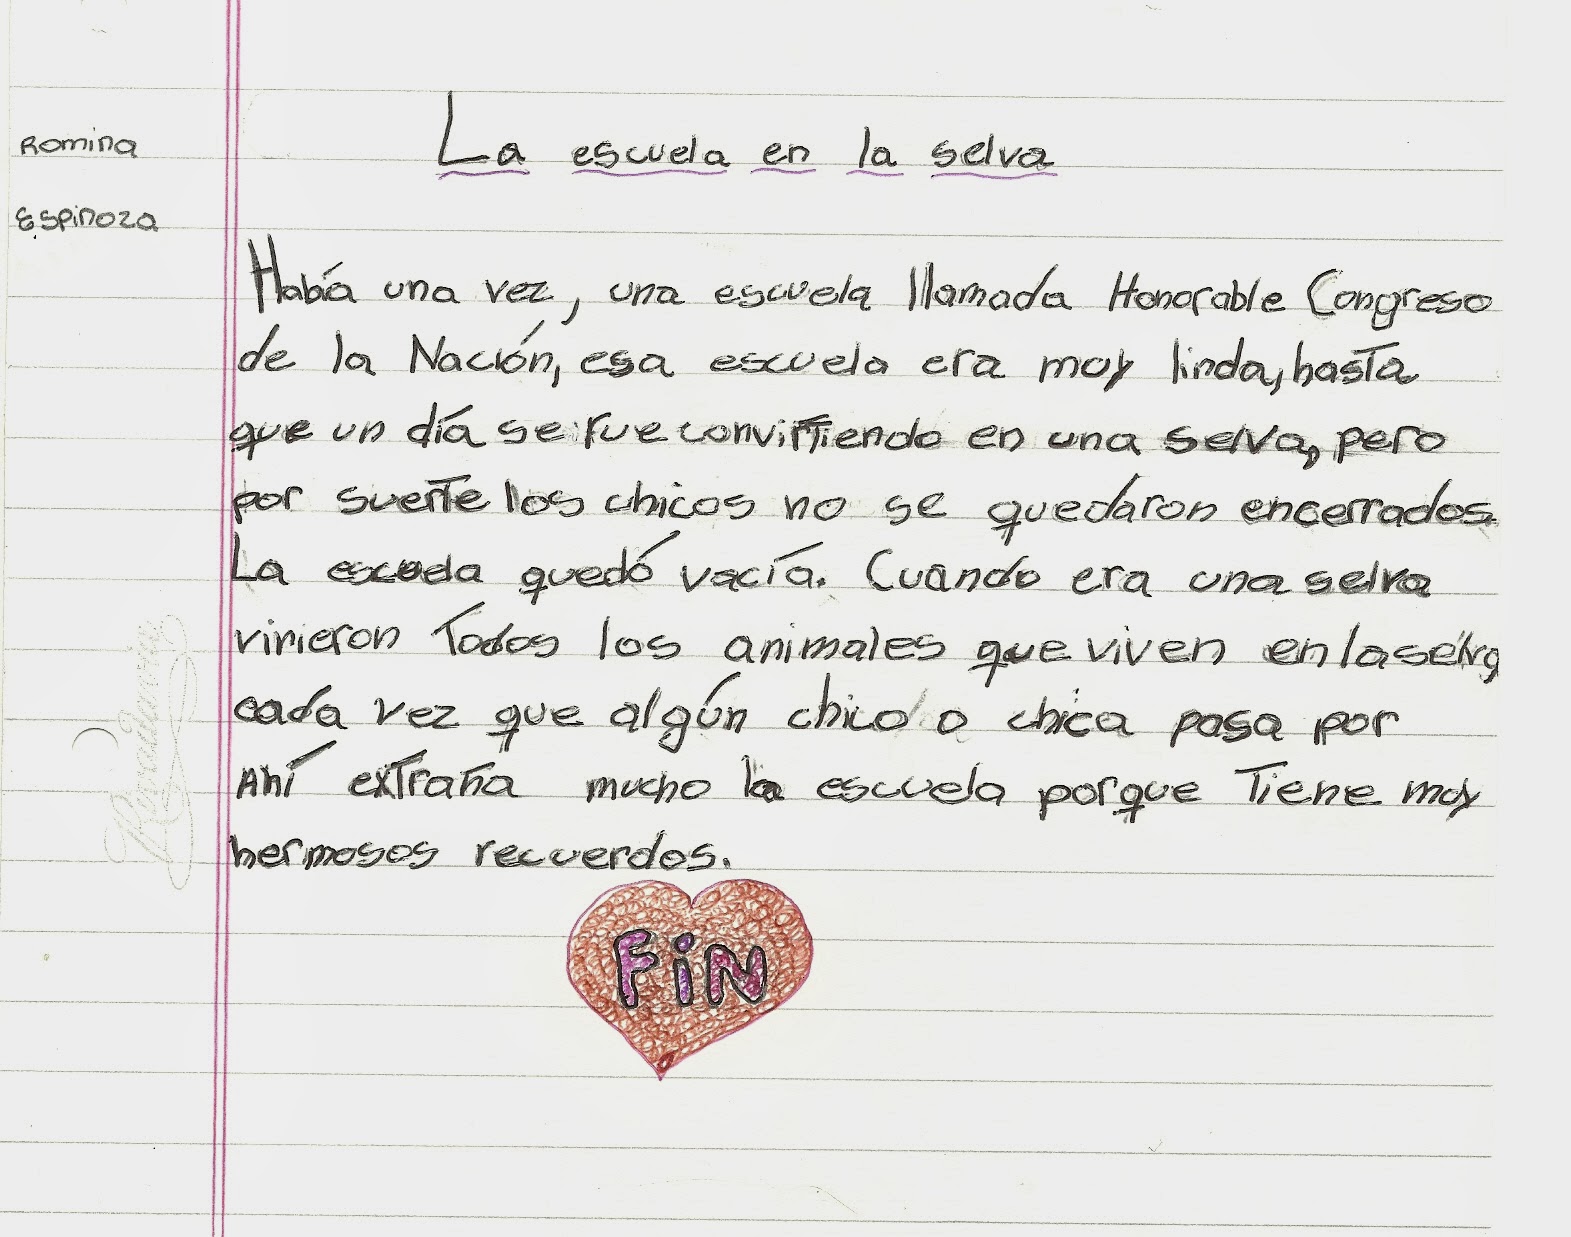 Romina
Espinoza
La escuela en la selva
Había una vez, una escuela llamada Honorable Congreso
de la Nación, esa escuela era muy linda, hasta
que un día se fue convirtiendo en una selva, pero
por suerte los chicos no se quedaron encerrados.
La escuela quedó vacía. Cuando era una selva
vinieron todos los animales que viven en la selva
cada vez que algún chico o chica pasa por
Ahí extraña mucho la escuela porque tiene muy
hermosos recuerdos.
FiN
Rivadavia